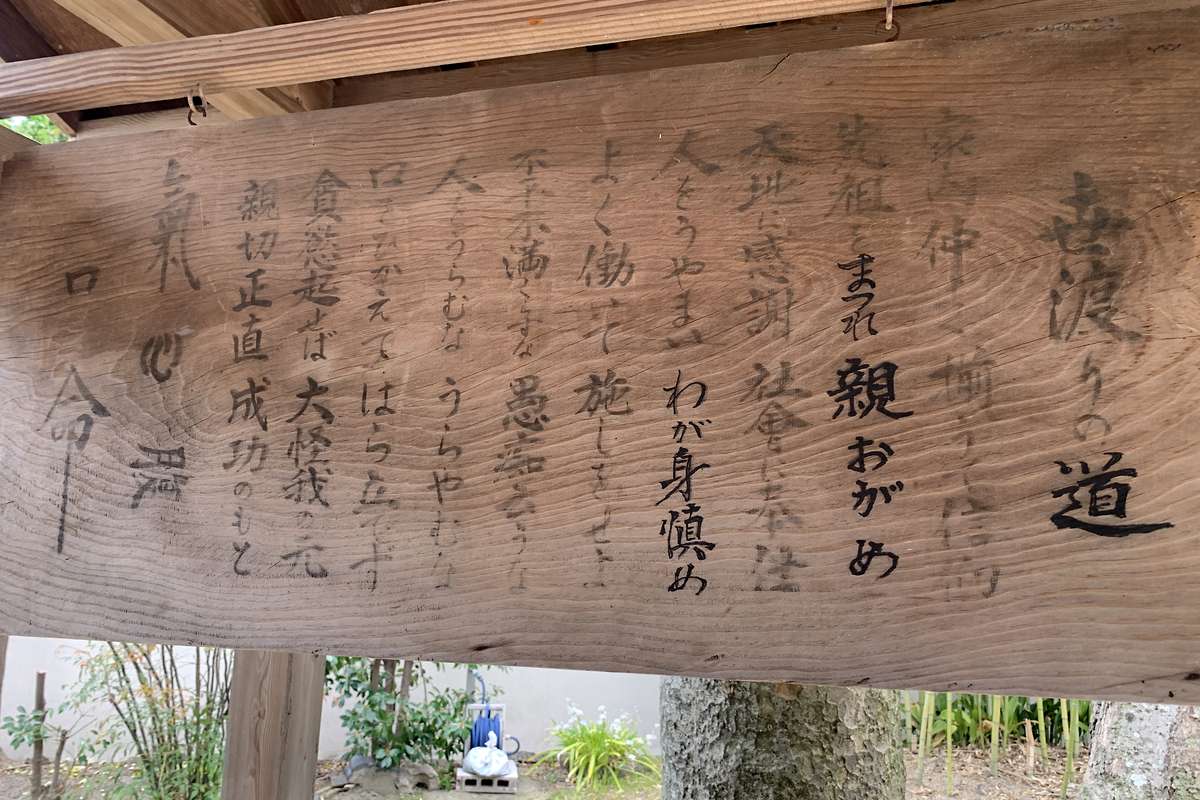 世渡りの道
家内仲よく揃うて信
先祖をまつれ親おがめ
天地に感謝社會に奉仕
人をうやまい わが身慎め
よく働いて施しをせよ
不平不満こすな 愚痴云うな
人をうらむな うらやむな
口をひかえて はら立てず
貪慾起せば 大怪我の元
親切正直 成功のもと
氣 心
口 命